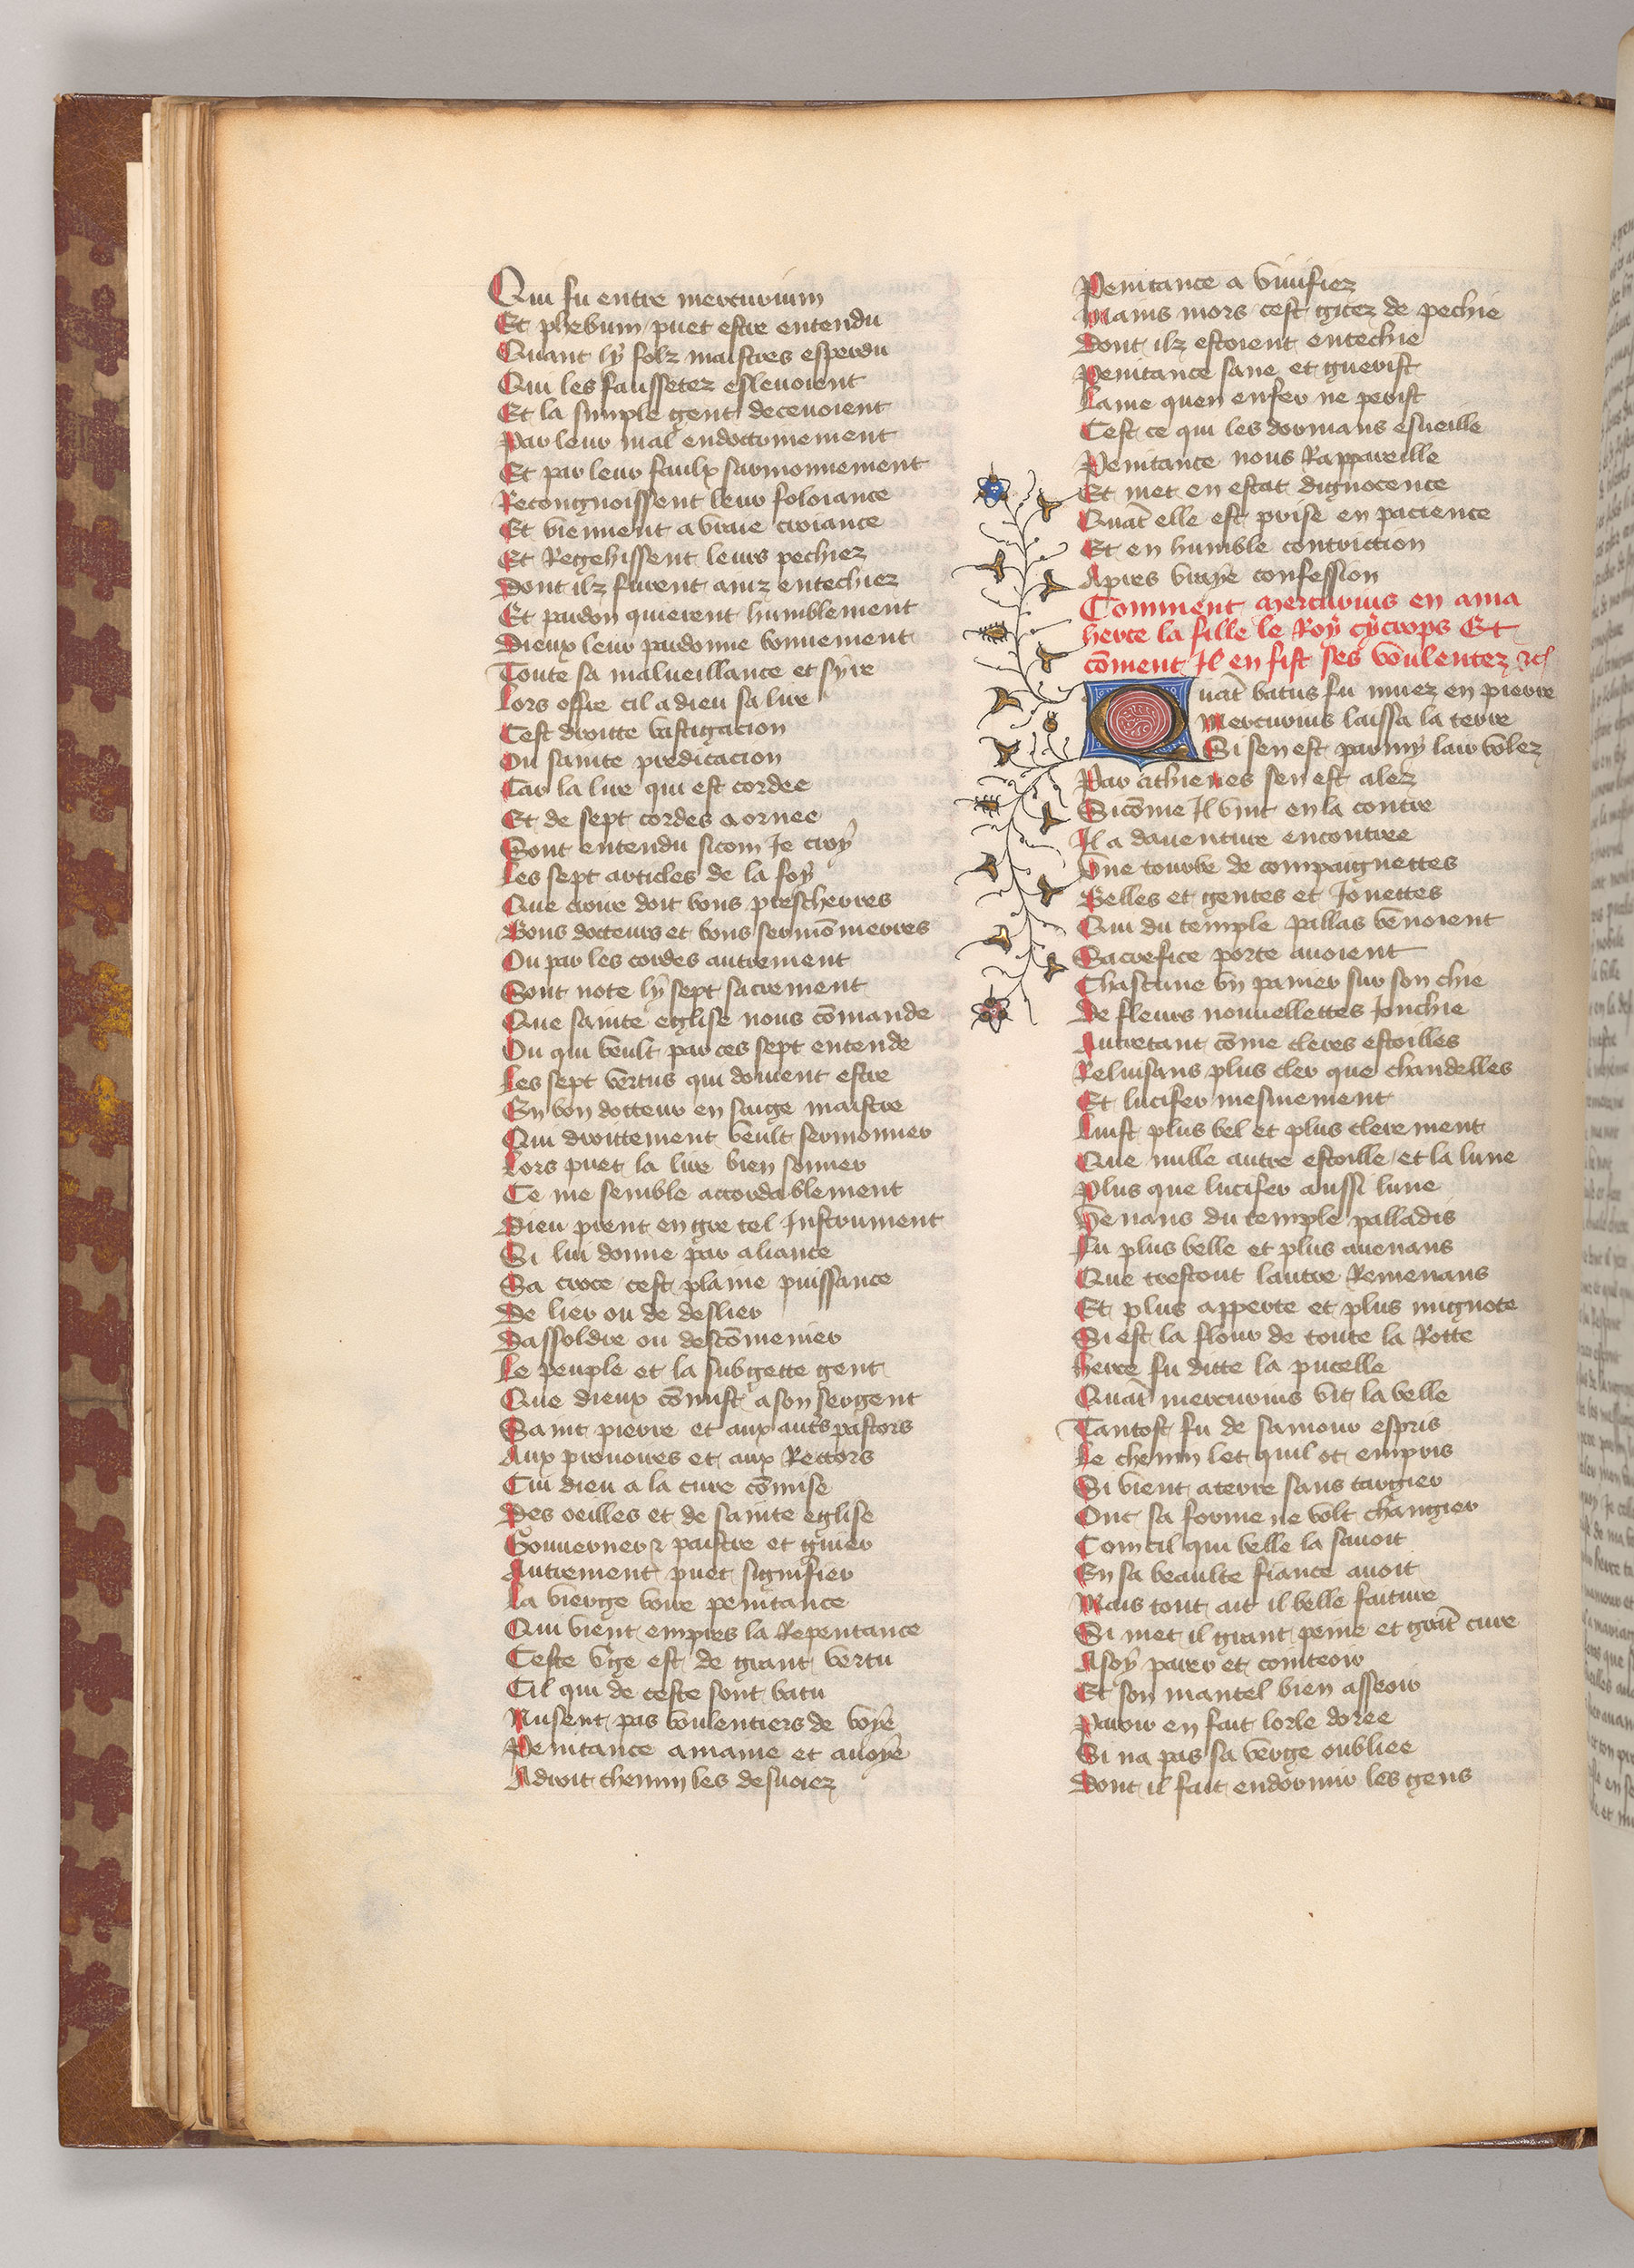 Qui fu entre mercurium
Et phebum puet estre entendu
Quant ly folz maistres esperdu
Qui les faussetez eslevoient
Et la simple gent decevoient
Par leur mal endoctrinement
Et par leur faulx sarmonnement
Recongnoissent leur foloiance
Et viennent a vraie croiance
Et Regehissent leurs pechiez
Dont ilz furent ainz entechiez
Et pardon quierent humblement
Dieux leur pardonne bonnement
Toute sa malveillance et syre
Lors offre cil a dieu sa lire
Cest droitte castigacion
Ou sainte predicacion
Car la lire qui est cordee
Et de sept cordes aornee
Sont entendu sicom Je croy
Les sept articles de la foy
Que croire doit bons prescherres
Bons docteurs et bons sermōnierres
Ou par les cordes autrement
Sont note ly sept sacrement
Que sainte eglise nous cōmande
Ou qui veult par ces sept entende
Les sept vertus qui doivent estre
En bon docteur en saige maistre
Qui droittement veult sermonner
Lors puet la lire bien sonner
Ce me semble accordablement
Dieu prent en gre tel Instrument
Si lui donne par aliance
Sa croce cest plaine puissance
De lier ou de deslier
Dassoldre ou descōmenier
Le peuple et la subgette gent
Que dieux cōmist a son sergent
Saint pierre et aux auts pastors
Aux provoires et aux Rectors
Cui dieu a la cure cōmise
Des oeilles et de sainte eglise
Gouverner & paistre et guier
Autrement puet signifier
La vierge voire penitance
Qui vient empres la Repentance
Ceste vge est de grant vertu
Cil qui de ceste sont batu
Nusent pas voulentiers de voye
Penitance amaine et avoye
A droit chemin les desvoiez
Penitance a vivifiez
Mains mors cest gitez de pechie
Dont ilz estoient entechie
Penitance sane et guerist
Lame quen enfer ne perist
Cest ce qui les dormans esveille
Penitance nous Rappareille
Et met en estat dignocence
Quāt elle est prise en pacience
Et en humble contriction
Apres vraye confession
Comment mercurius en ama
herce la fille le Roy cycrops Et
cōment Il en fist ses voulentez &c
Quāt batus fu muez en pierre
Mercurius laissa la terre
Si sen est parmy lair volez
Par athienes sen est alez
Sicōme Il vint en la contre
Il a daventure encontree
Une tourbe de compaignettes
Belles et gentes et Jonettes
Qui du temple pallas venoient
Sacrefice porte avoient
Chascune un panier sur son chie
De fleurs nouvellettes Jonchie
Autretant cōme cleres estoilles
Reluisans plus cler que chandelles
Et lucifer mesmement
Luist plus bel et plus clerement
Que nulle autre estoille et la lune
Plus que lucifer aussi lune
Venans du temple palladis
Fu plus belle et plus avenans
Que trestout lautre Remenans
Et plus apperte et plus mignote
Si est la flour de toute la Rotte
herce fu ditte la pucelle
Quāt mercurius vit la belle
Tantost fu de samour espris
Le chemin let quil ot empris
Si vient a terre sans targier
Onc sa forme ne volt changier
Com cil qui belle la savoit
En sa beaulte fiance avoit
Mais tout ait il belle faiture
Si met il grant peine et grāt cure
A soy parer et cointoir
Et son mantel bien asseoir
Paroir en fait lorle doree
Si na pas sa verge oubliee
Dont il fait endormir les gens